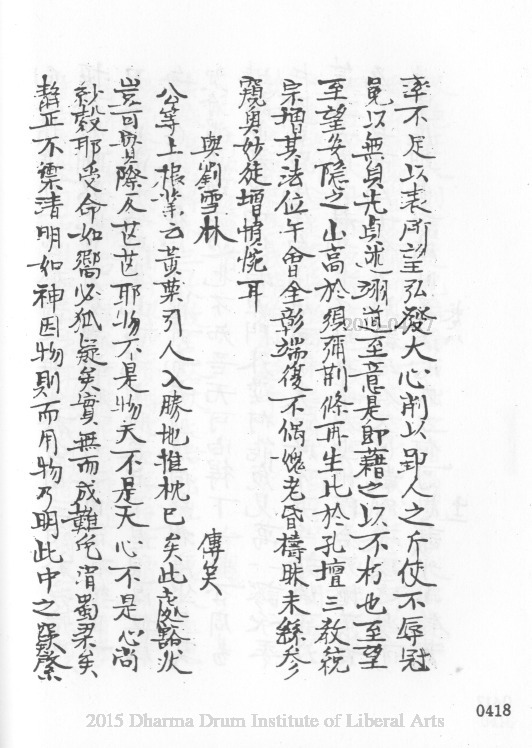 率不足以表所望弘發大心削以郢人之斤使不辱冠
冕以無負先貞逃翊道至意是即藉之以不朽也至望
至望安隱之山高於須彌荊條再生比於孔壇三教統
宗增其法位午會全彰端復不偶愧老昏檮昧未繇參
窺奧妙徒增惘恍耳
與劉雪林 傳笑
公等上根業云黃葉引人入勝地推枕已矣此處豁然
豈可實際反芒芒耶物不是物天不是天心不是心尚
紗縠耶受命如嚮必狐疑矣實無而成難色消蜀柔矣
靜正不需清明如神因物則而用物乃明此中之槩綮
2015 Dharma Drum Institute of Liberal Arts
0418